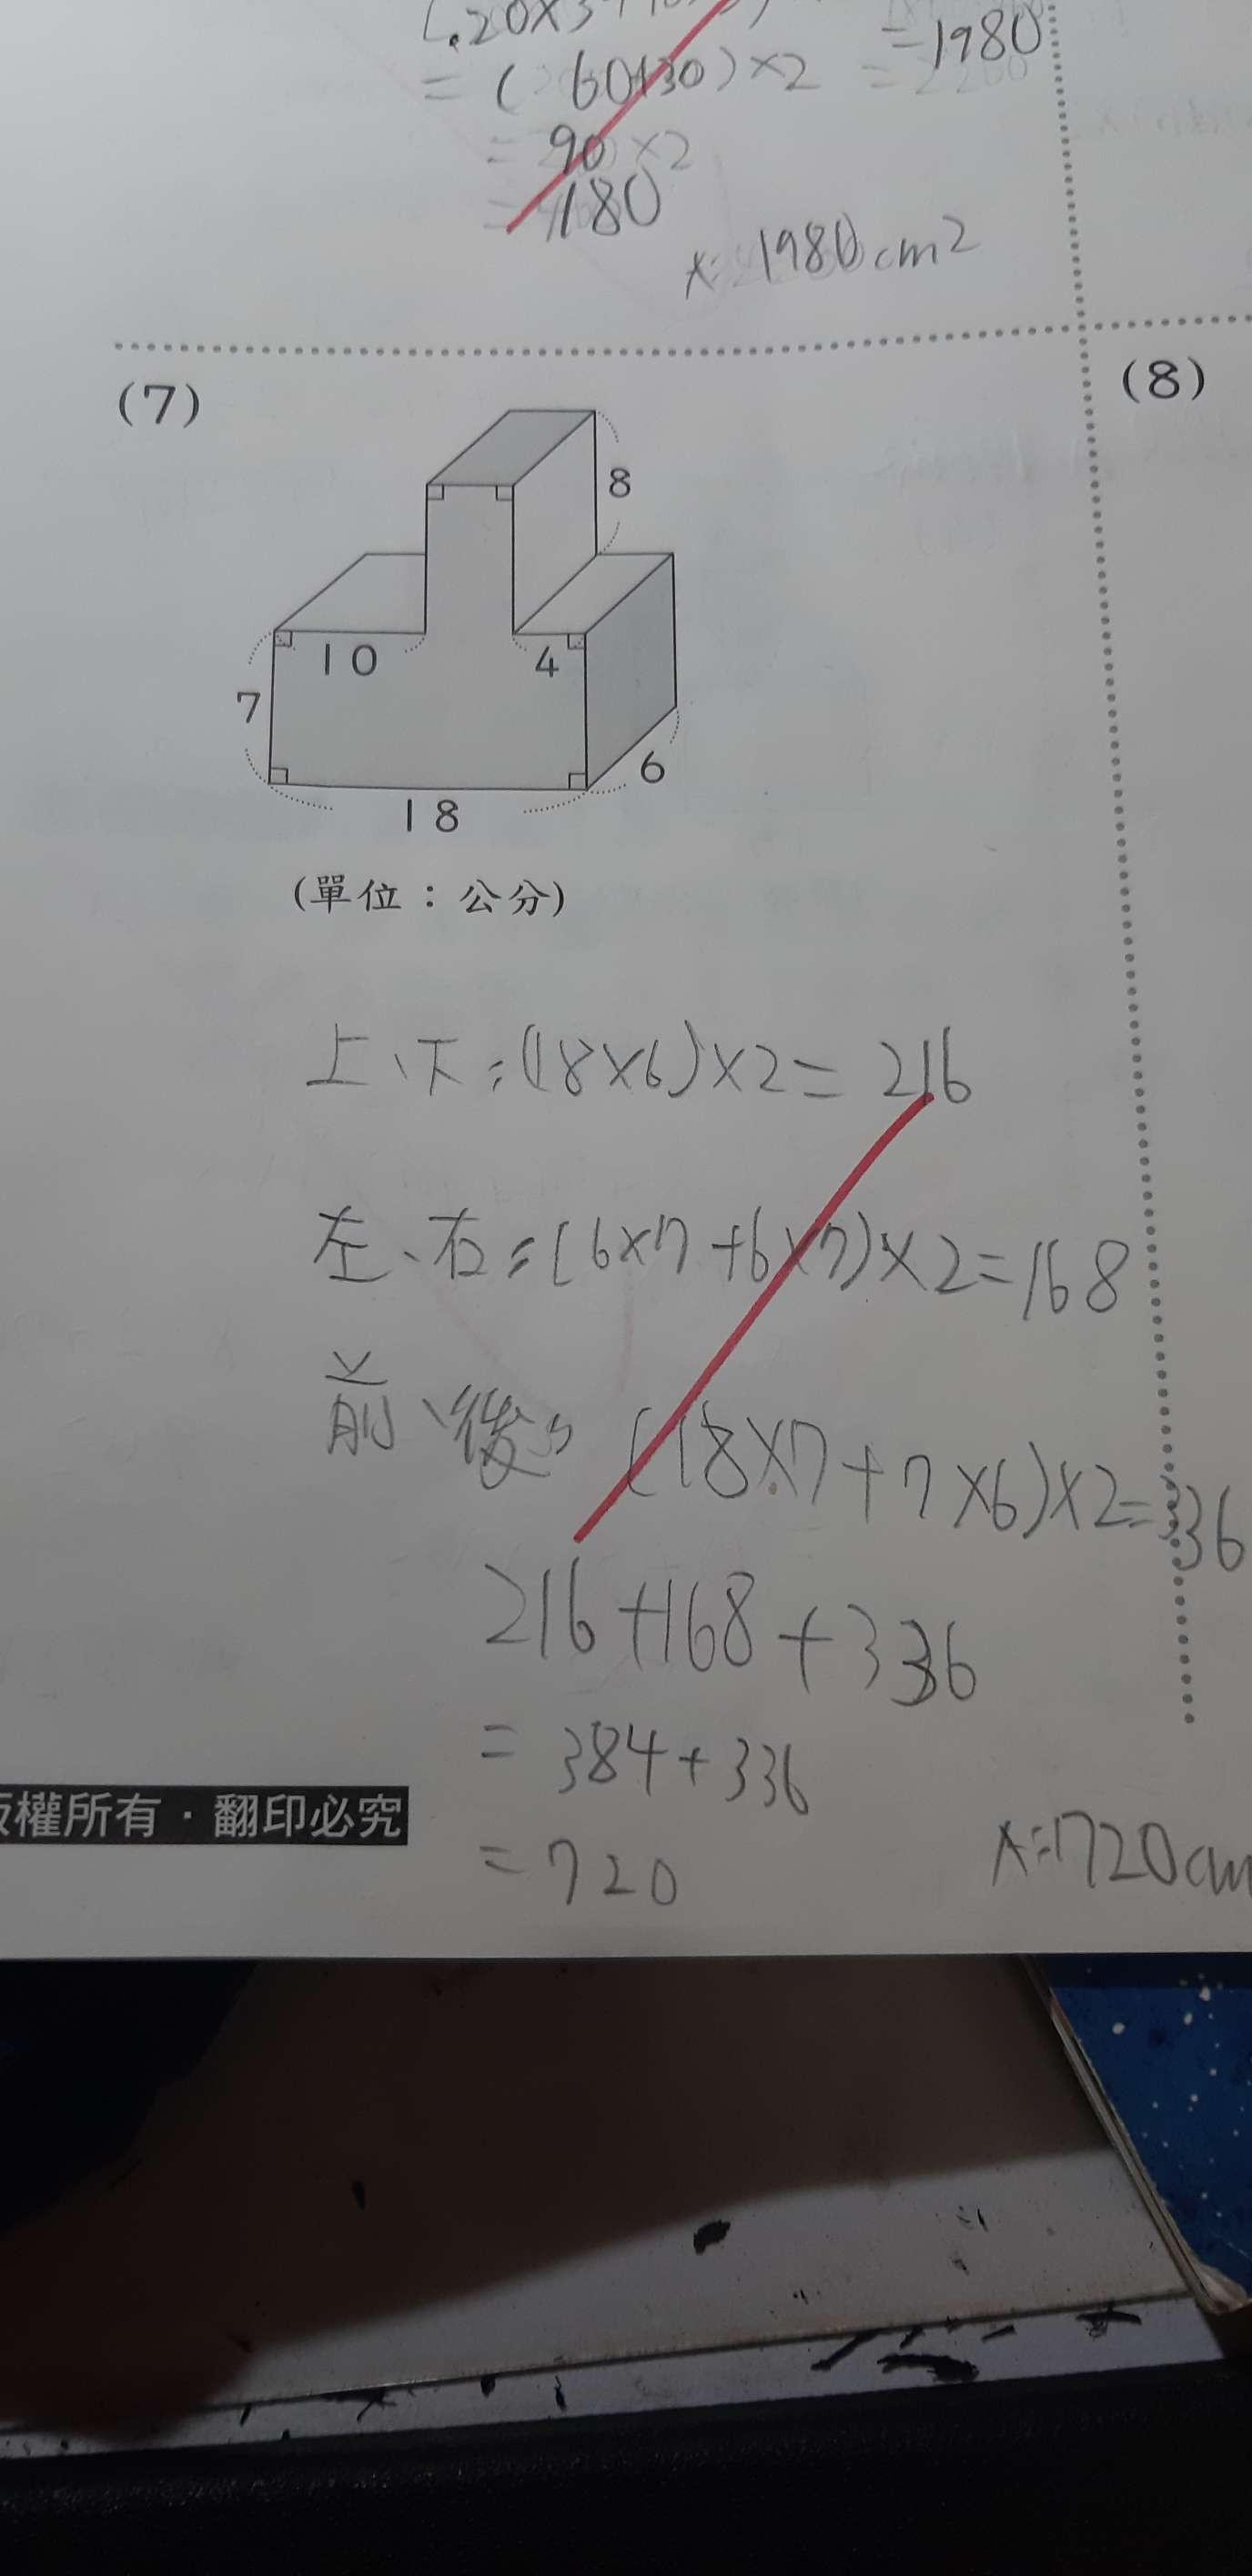 =1980
= (60+30)×2
= 90×2
= 180
A: 1980cm2
(7)
(8)
8
10
4
7
6
18
(單位：公分)
上、下:(18×6)×2=216
左、右:(6×7+6×7)×2=168
前、後: (18×7+7×6)×2=336
216+168+336
= 384+336
= 720
A:720cm
版權所有·翻印必究